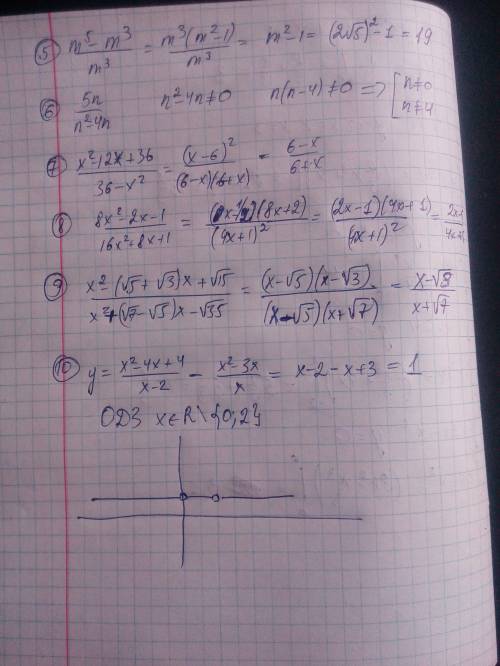 5) (m⁵ - m³)/m³ = m³(m² - 1)/m³ = m² - 1 = (2√5)² - 1 = 19
6) 5n/(n² - 4n) n² - 4n ≠ 0 n(n - 4) ≠ 0 => [n ≠ 0 n ≠ 4
7) (x² - 12x + 36)/(36 - x²) = (x - 6)²/((6 - x)(6 + x)) = (6 - x)/(6 + x)
8) (8x² - 2x - 1)/(16x² + 8x + 1) = (8x + 2)/(4x + 1)² = (2x - 1)(4x + 1)/(4x + 1)² =
9) (x² - (√5 + √3)x + √15)/(x² + (√7 - √5)x - √35) = (x - √5)(x - √3)/((x - √5)(x + √7)) = (x - √3)/(x + √7)
10) y = (x² - 4x + 4)/(x - 2) - (x² - 3x)/x = x - 2 - x + 3 = 1
ОДЗ x ∈ R \ {0; 2}